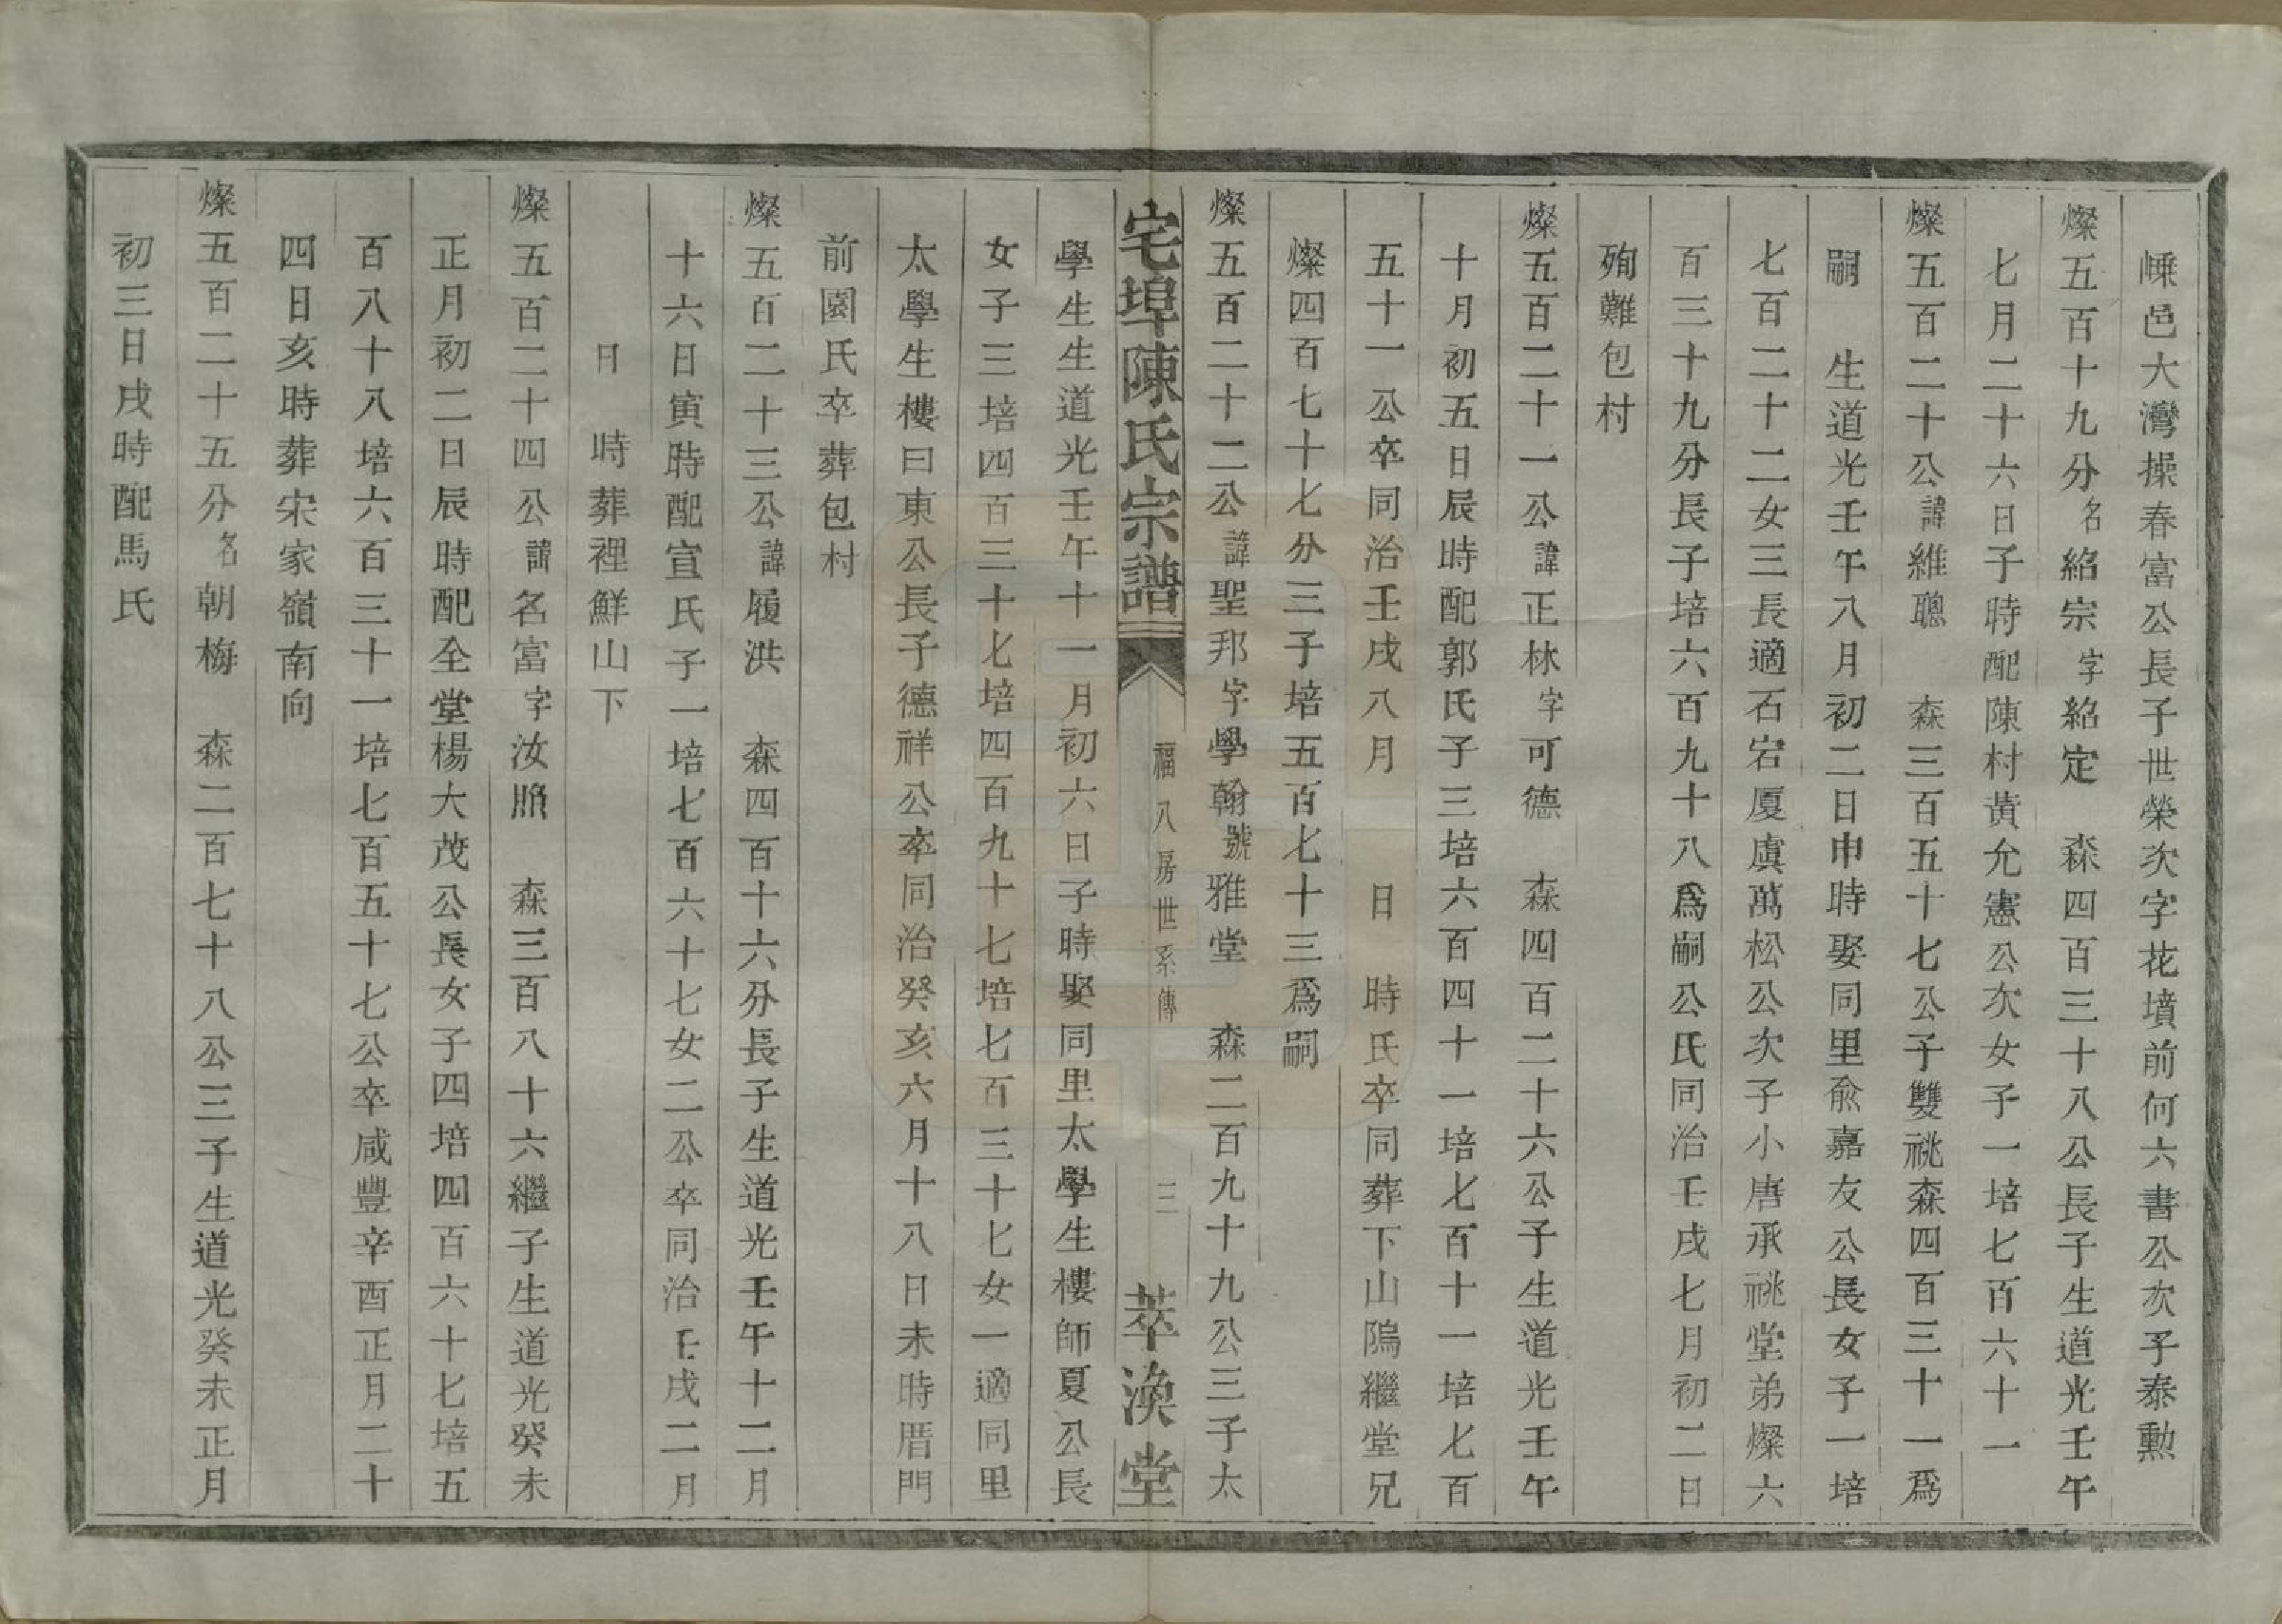 嵊邑大灣操春富公長子世榮次字花墳前何六書公次子泰勲
燦五百十九分名紹宗字紹定　森四百三十八公長子生道光壬午
七月二十六日子時配陳村黃允憲公次女子一培七百六十一
燦五百二十公諱維聰　森三百五十七公子雙祧森四百三十一爲
嗣　生道光壬午八月初二日申時娶同里俞嘉友公長女子一培
七百二十二女三長適石宕厦虞萬松公次子小唐承祧堂弟燦六
百三十九分長子培六百九十八爲嗣公氏同治壬戌七月初二日
殉難包村
燦五百二十一公諱正林字可德　森四百二十六公子生道光壬午
十月初五日辰時配郭氏子三培六百四十一培七百十一培七百
五十一公卒同治壬戌八月　日　時氏卒同葬下山隖繼堂兄
燦四百七十七分三子培五百七十三爲嗣
燦五百二十二公諱聖邦字學翰號雅堂　森二百九十九公三子太
宅埠陳氏宗譜　福八房世系傳　二　萃渙堂
學生生道光壬午十一月初六日子時娶同里太學生樓師夏公長
女子三培四百三十七培四百九十七培七百三十七女一適同里
太學生樓曰東公長子德祥公卒同治癸亥六月十八日未時厝門
前園氏卒葬包村
燦五百二十三公諱履洪　森四百十六分長子生道光壬午十二月
十六日寅時配宣氏子一培七百六十七女二公卒同治壬戌二月
日　時葬裡鮮山下
燦五百二十四公諱名富字汝照　森三百八十六繼子生道光癸未
正月初二日辰時配全堂楊大茂公長女子四培四百六十七培五
百八十八培六百三十一培七百五十七公卒咸豐辛酉正月二十
四日亥時葬宋家嶺南向
燦五百二十五分名朝梅　森二百七十八公三子生道光癸未正月
初三日戌時配馬氏